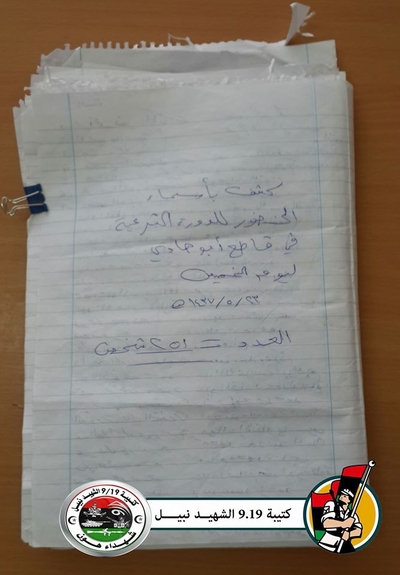 كشف بأسماء
الحضور للدورة الشرعية
في قاطع أبو هادي
ليوم الخميس
٢٣/٥/١٤٣٧ ه
العدد = ٢٥١ شخص
كتيبة 9/19 الشهيد نبيل
شهداء هون
كتيبة 9.19 الشهيد نبيل